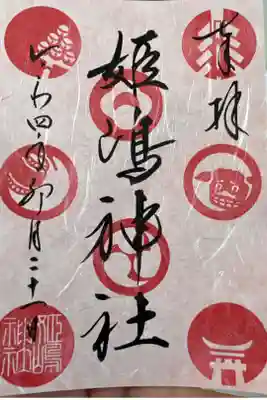 奉拝
姫嶋神社
令和四年卯月二十一日
姫嶋神社